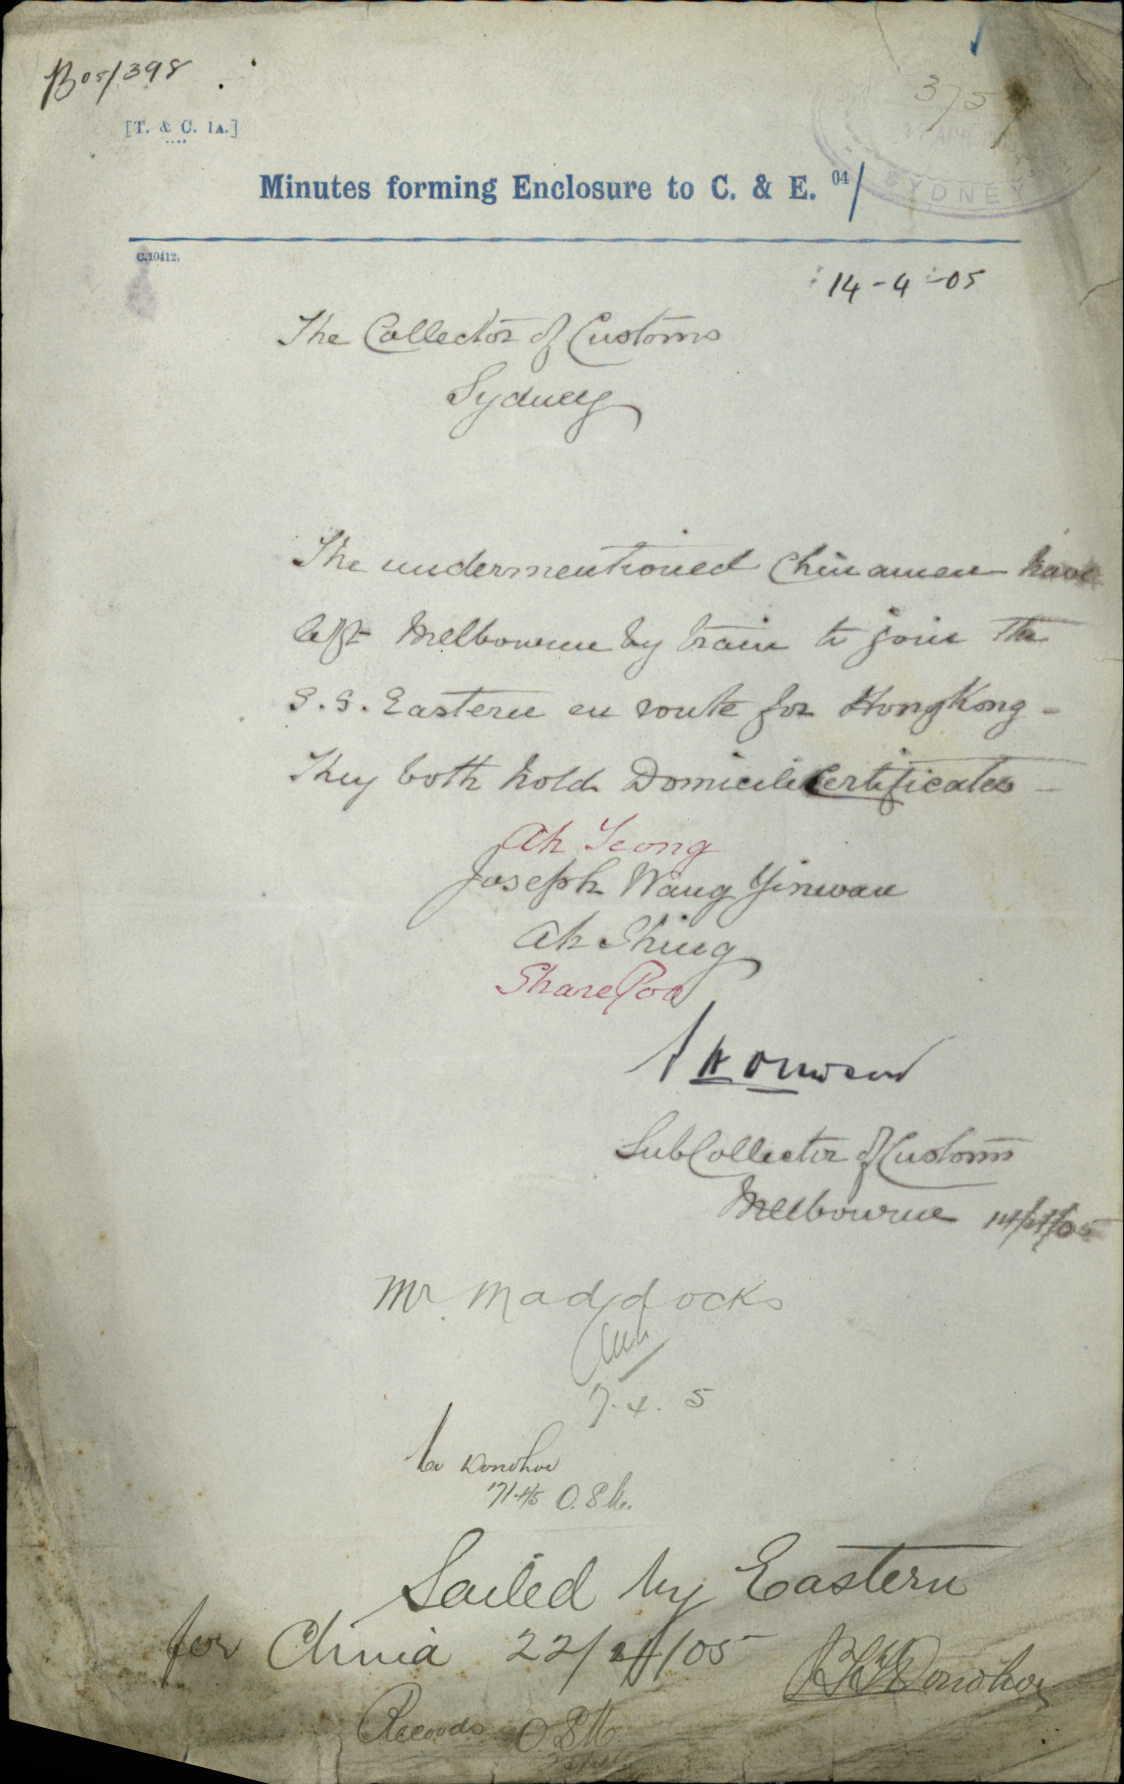 B05/398
375
[T. & C. 1A.]
SYDNEY
Minutes forming Enclosure to C. & E. 04/
C.10412.
14-4-05
The Collector of Customs
Sydney
The undermentioned Chinamen have
left Melbourne by train to join the
S.S. Eastern en route for HongKong -
They both hold Domicile Certificates -
Ah Yeong
Joseph Wang Yinwan
Ah Shing
Share Poa
Sub Collector of Customs
Melbourne 14/4/05
Mr Maddocks
7.4.5
Donohoe
Sailed by Eastern
for China 22/4/05
Donohoe
Records